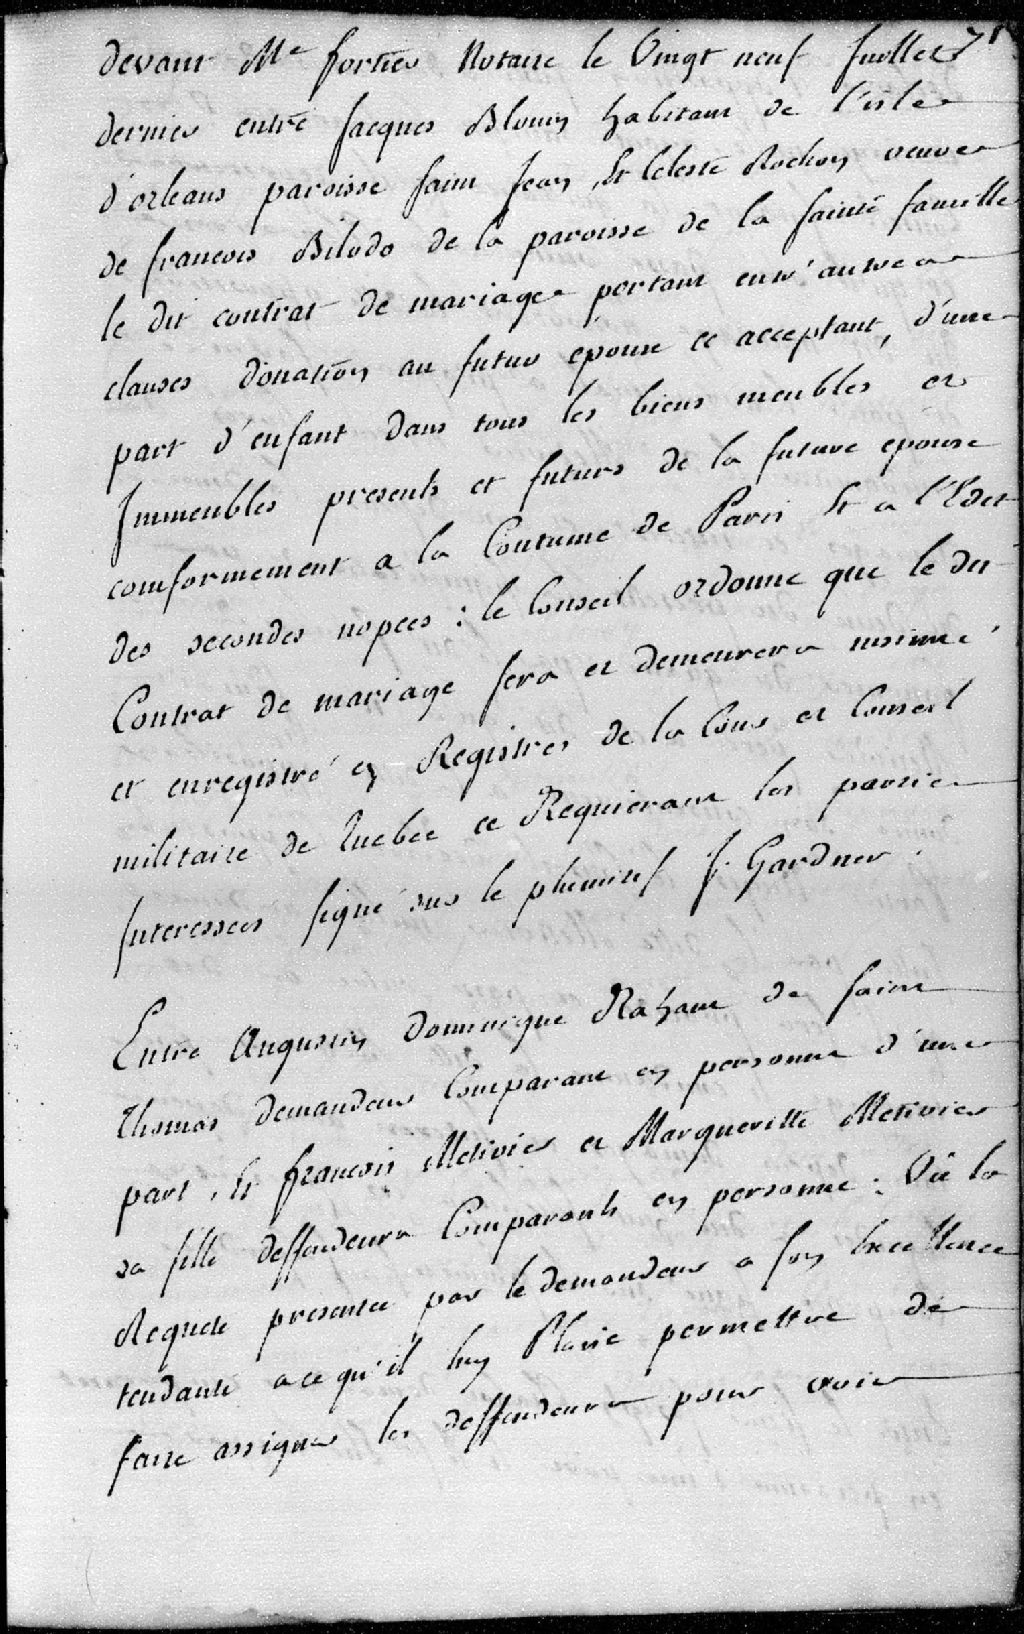 devant Me fortier Notaire le Vingt neuf Juillet 71
dernier entre Jacques Blouin habitant de l'isle
d'orleans paroisse Saint Jean, Et Celeste Rochon veuve
de francois Bilodo de la paroisse de la Sainte famille
le dit contrat de mariage portant entr'autre
clauses donation au futur epoux ce acceptant, d'une
part d'enfant dans tous les biens meubles et
Immeubles presents et futurs de la future epouse
conformement a la Coutume de Paris Et a l'Edet
des secondes nopces : le Conseil ordonne que le dit
Contrat de mariage sera et demeurera insinué
et enregistré es Registres de la Cour et Conseil
militaire de Quebec ce Requierant les parties
Interessees signé sur le plumitif J. Gardner.
Entre Augustin Dominique Rahaut de Saint
Thomas demandeur Comparant en personne d'une
part, Et francois Metivier et Marguerite Metivier
sa fille deffendeurs Comparants en personne : Vu la
Requete presentee par le demandeur a Son Excellence
tendante a ce qu'il luy Plaise permettre de
faire assigner les deffendeurs pour voir